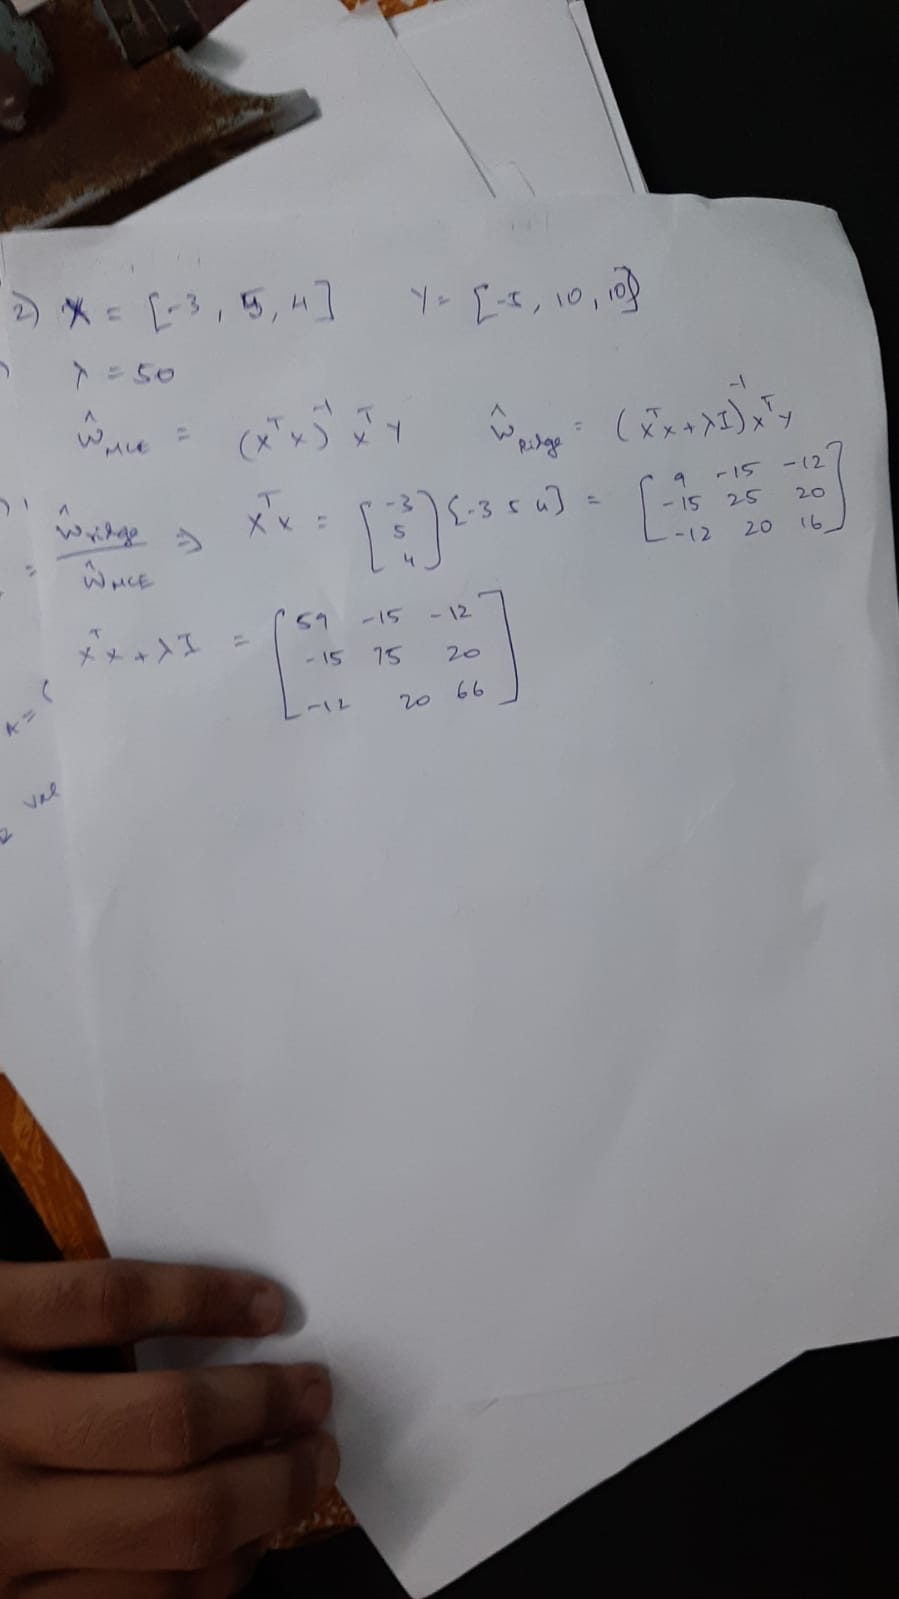 2) X = [-3, 5, 4] Y = [-5, 10, 10]
λ = 50
ŵ_MLE = (XᵀX)⁻¹ XᵀY ŵ_Ridge = (XᵀX + λI)⁻¹ XᵀY
ŵ_ridge / ŵ_MLE ⇒ XᵀX = [-3 5 4] [-3 5 4] = [9 -15 -12
-15 25 20
-12 20 16]
XᵀX + λI = [59 -15 -12
-15 75 20
-12 20 66]
k = (
val